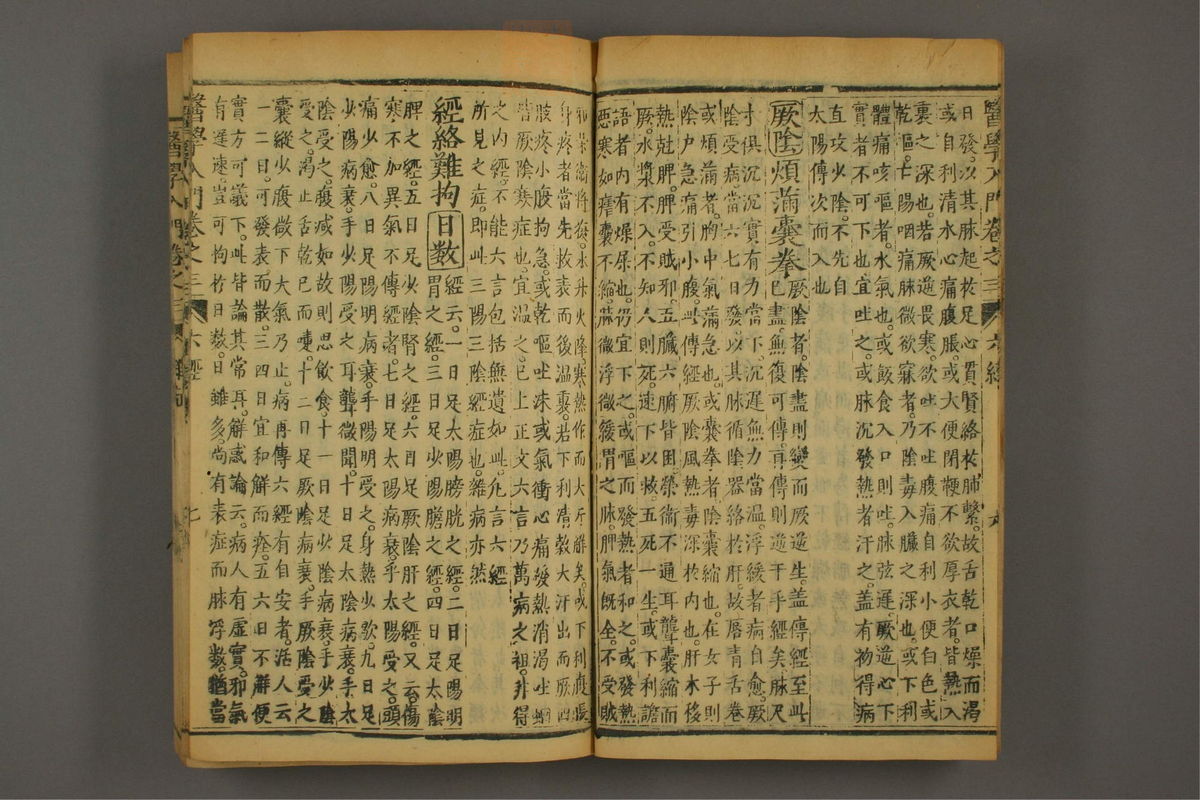 醫學入門卷之三 六經
日發以其脉起於足心貫腎絡於肺繫故舌乾口燥而渴
或自利清水心痛腹脹或大便閉鞕不欲厚衣者皆熱入
裏之深也若厥逆畏寒欲吐不吐腹痛自利小便白色或
乾嘔亡陽咽痛脉微欲寐者乃陰毒入臟之深也或下利
體痛咳嘔者水氣也或飯食入口則吐脉弦遲厥逆心下
實者不可下也宜吐之或脉沉發熱者汗之蓋有初得病
直攻少陰不先自
太陽傳次而入也
厥陰煩滿囊拳
厥陰者陰盡則變而厥逆生蓋傳經至此
已盡無復可傳再傳則逆于手經矣脉尺
寸俱沉沉實有力當下沉遲無力當温浮緩者病自愈厥
陰受病當六七日發以其脉循陰器絡於肝故唇青舌卷
或煩滿者胸中氣滿急也或囊拳者陰囊縮也在女子則
陰户急痛引小腹此傳經厥陰風熱毒深於内也肝木移
熱尅脾脾受賊邪五臟六腑皆困榮衛不通耳聾囊縮而
厥水漿不入不知人則死速下以救五死一生或下利譫
語者内有燥屎也仍宜下之或嘔而發熱者和之或發熱
惡寒如瘧囊不縮脉微浮微緩謂之脉脾氣既全不受賊
邪榮衛將復水升火降寒熱作而大汗解矣或下利腹脹
身疼者當先救表而後温裏若下利清穀大汗出而厥四
肢疼小腹拘急或乾嘔吐沫或氣衝心痛發熱消渴吐蛔
皆厥陰寒症也宜温之已上正文六言乃萬病之祖非得
之内經不能六言包括無遺如此凡言六經
所見之症即此三陽三陰經症也雜病亦然
經絡難拘日数
經云一日足太陽膀胱之經二日足陽明
胃之經三日足少陽膽之經四日足太陰
脾之經五日足少陰腎之經六日足厥陰肝之經又云傷
寒不加異氣不傳經者七日足太陽病衰手太陽受之頭
痛少愈八日足陽明病衰手陽明受之身熱少歇九日足
少陽病衰手少陽受之耳聾微聞十日足太陰病衰手太
陰受之腹減如故則思飲食十一日足少陰病衰手少陰
受之渴止舌乾已而嚏十二日足厥陰病衰手厥陰受之
囊縱少腹微下大氣乃止病再傳六經有自安者活人云
一二日可發表而散三四日宜和解而痊五六日不解便
實方可議下此皆論其常耳解惑論云病人有虛實邪氣
有遲速豈可拘於日数日雖多尚有表症而脉浮数猶當
醫學入門卷之三 六經 七